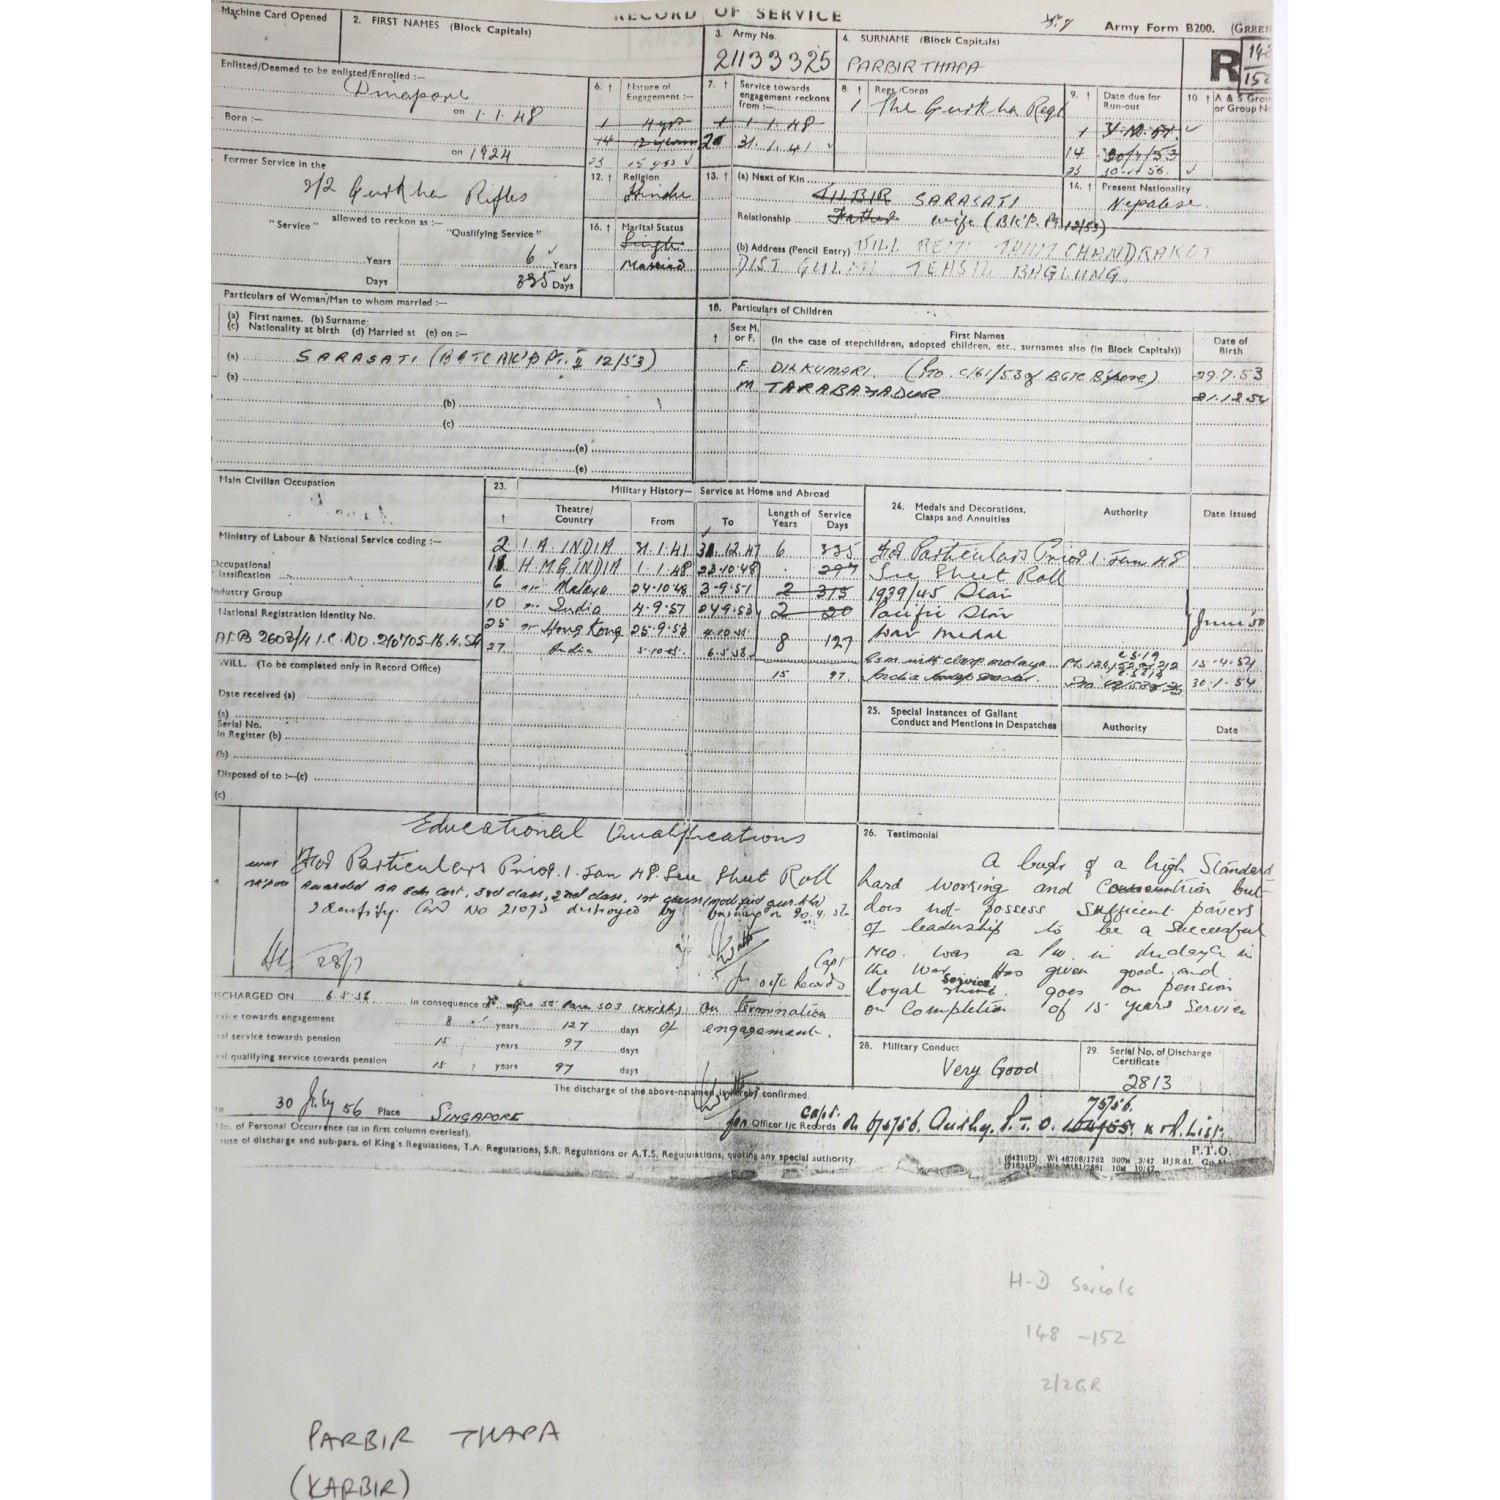 RECORD OF SERVICE
Army Form B200. (GREEN
Machine Card Opened
2. FIRST NAMES (Block Capitals)
3. Army No.
21133325
4. SURNAME (Block Capitals)
PARBIR THAPA
R 148
152
Enlisted/Deemed to be enlisted/Enrolled :—
Dinapore
on 1.1.48
Born :—
on 1924
Former Service in the
2/2 Gurkha Rifles
allowed to reckon as :—
"Service"
"Qualifying Service"
Years 6 Years
Days 335 Days
6. † Nature of Engagement :—
1 4 yrs
14 12 years
23 15 yrs
7. † Service towards engagement reckons from :—
1 1.1.48
31.1.41
8. † Regt./Corps
1 The Gurkha Regt
9. † Date due for Run-out
1
14
23
10. † A & S Grou
or Group No
12. † Religion
Hindu
13. † (a) Next of Kin SARASATI
Relationship Father wife (BK'P. Pt 12/53)
(b) Address (Pencil Entry) VILL REMI THUM CHANDRAKOT
DIST GULMI TEHSIL BAGLUNG
14. † Present Nationality
Nepalese.
16. † Marital Status
Single
Married
Particulars of Woman/Man to whom married :—
(a) First names. (b) Surname.
(c) Nationality at birth (d) Married at (e) on :—
(a) SARASATI (BGTC BK'P Pt. II 12/53)
(a)
(b)
(c)
(e)
(e)
18. Particulars of Children
† Sex M. or F.
First Names
(In the case of stepchildren, adopted children, etc., surnames also (in Block Capitals))
Date of Birth
F. DILKUMARI. (Pto. C/61/53 of BGTC B'pore) 29.7.53
M. TARABAHADUR 21.12.54
Main Civilian Occupation
Ministry of Labour & National Service coding :—
Occupational
lassification
ndustry Group
National Registration Identity No.
AFB 2603/4 I.C. NO. 216705-16.4.54
WILL. (To be completed only in Record Office)
Date received (a)
(a)
Serial No.
in Register (b)
(b)
Disposed of to :—(c)
(c)
23. Military History— Service at Home and Abroad
† Theatre/Country From To Length of Service Years Days
2 I.A. INDIA 31.1.41 31.12.47 6 335
H.M.G. INDIA 1.1.48 23.10.48 297
6 Malaya 24.10.48 3.9.51 2 315
10 India 4.9.51 24.9.53 2 20
25 Hong Kong 25.9.53 8 127
27 India 6.5.56
15 97
24. Medals and Decorations, Clasps and Annuities
Authority
Date Issued
For Particulars Prior 1. Jan 48
See Sheet Roll
1939/45 Star
Pacific Star
War Medal
June 50
G.S.M. with clasp malaya 15.4.54
India 30.1.54
25. Special Instances of Gallant Conduct and Mentions in Despatches
Authority
Date
Educational Qualifications
For Particulars Prior. 1. Jan 48. See Sheet Roll
Awarded BA Edn Cert, 3rd class, 2nd class, 1st class (modified gurkha)
Identity Card No 21073 destroyed by burning on
Capt
for o i/c Records
26. Testimonial
a bugler of a high Standard
hard working and but
does not possess sufficient powers
of leadership to be a successful
Nco. was a Pw. in Malaya in
the War. Has given good and
Loyal Service. goes on pension
on Completion of 15 years Service
ISCHARGED ON 6.5.56 in consequence of on termination of engagement.
vice towards engagement 8 years 127 days
al service towards pension 15 years 97 days
al qualifying service towards pension 15 years 97 days
28. Military Conduct
Very Good
29. Serial No. of Discharge Certificate
2813
The discharge of the above-named is hereby confirmed.
30 July 56 Place SINGAPORE
Capt.
for Officer i/c Records
75/56.
No. of Personal Occurrence (as in first column overleaf).
use of discharge and sub-para. of King's Regulations, T.A. Regulations, S.R. Regulations or A.T.S. Regulations, quoting any special authority.
P.T.O.
H-D Serials
148 - 152
2/2GR
PARBIR THAPA
(KARBIR)